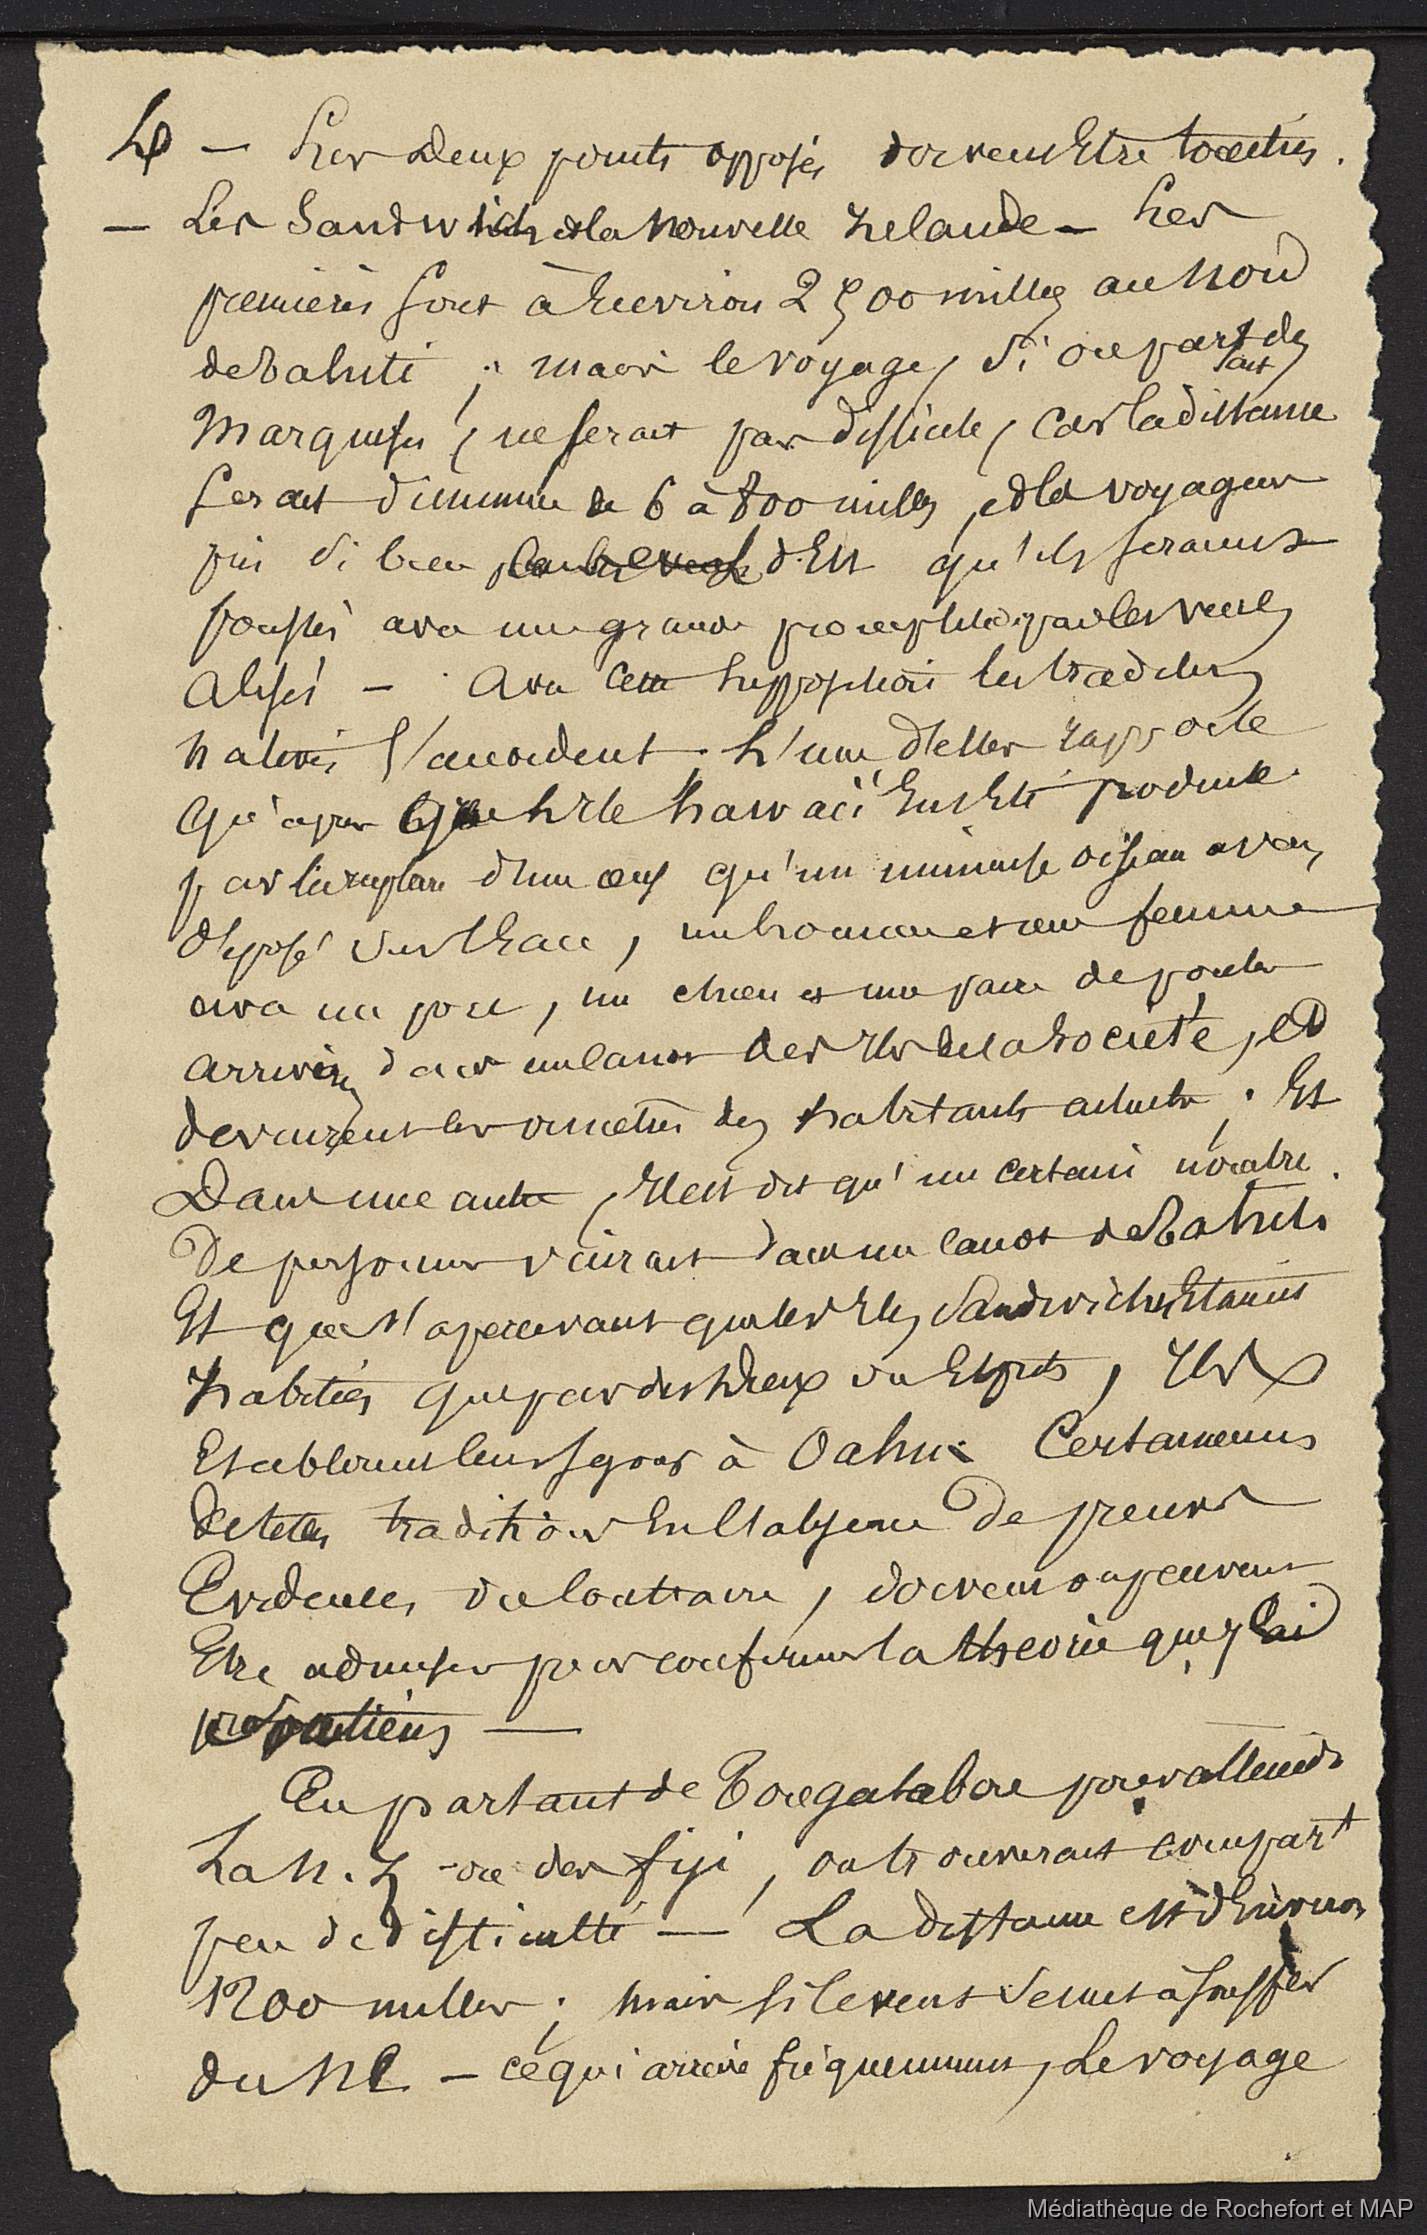 — Les deux points opposés doivent Etre traités.
— Les Sandwich et la Nouvelle Zelande — Les
premières sont à Environ 2500 milles au Nord
de Tahiti ; mais le voyage, si on part des
Marquises, ne serait pas difficile, car la distance
serait diminuée de 6 à 800 milles, et les voyageurs
si bien d'Est qu'ils seraient
poussés avec une grande promptitude par les vents
alisés — Avec cette supposition les traditions
natives s'accordent. L'une d'elles rapporte
qu'après que l'Ile Hawaii eut Eté produite
par l'explosion d'un œuf qu'un immense oiseau avait
déposé sur l'Eau, un homme et une femme
avec un porc, un chien et une paire de poules
arrivèrent dans un canot des Iles de la Société, et
devinrent les ancêtres des habitants actuels ; Et
Dans une autre, Il est dit qu'un certain nombre
De personnes vinrent dans un canot de Tahiti
Et que s'apercevant que les Iles Sandwiches Etaient
habitées que par des Dieux ou Esprits, Ils
Etablirent leur séjour à Oahu. Certainement
De telles traditions En l'absence De preuves
Evidentes du contraire, doivent ou peuvent
Etre admises pour confirmer la théorie que j'ai
soutiens —
En partant de Tongatabou pour atteindre
La N. Z. ou des Fiji, on trouverait comparᵗ
peu de difficulté — La distance est d'Environ
1200 milles ; mais si le vent venait à souffler
du NE — ce qui arrive fréquemment, Le voyage
Médiathèque de Rochefort et MAP